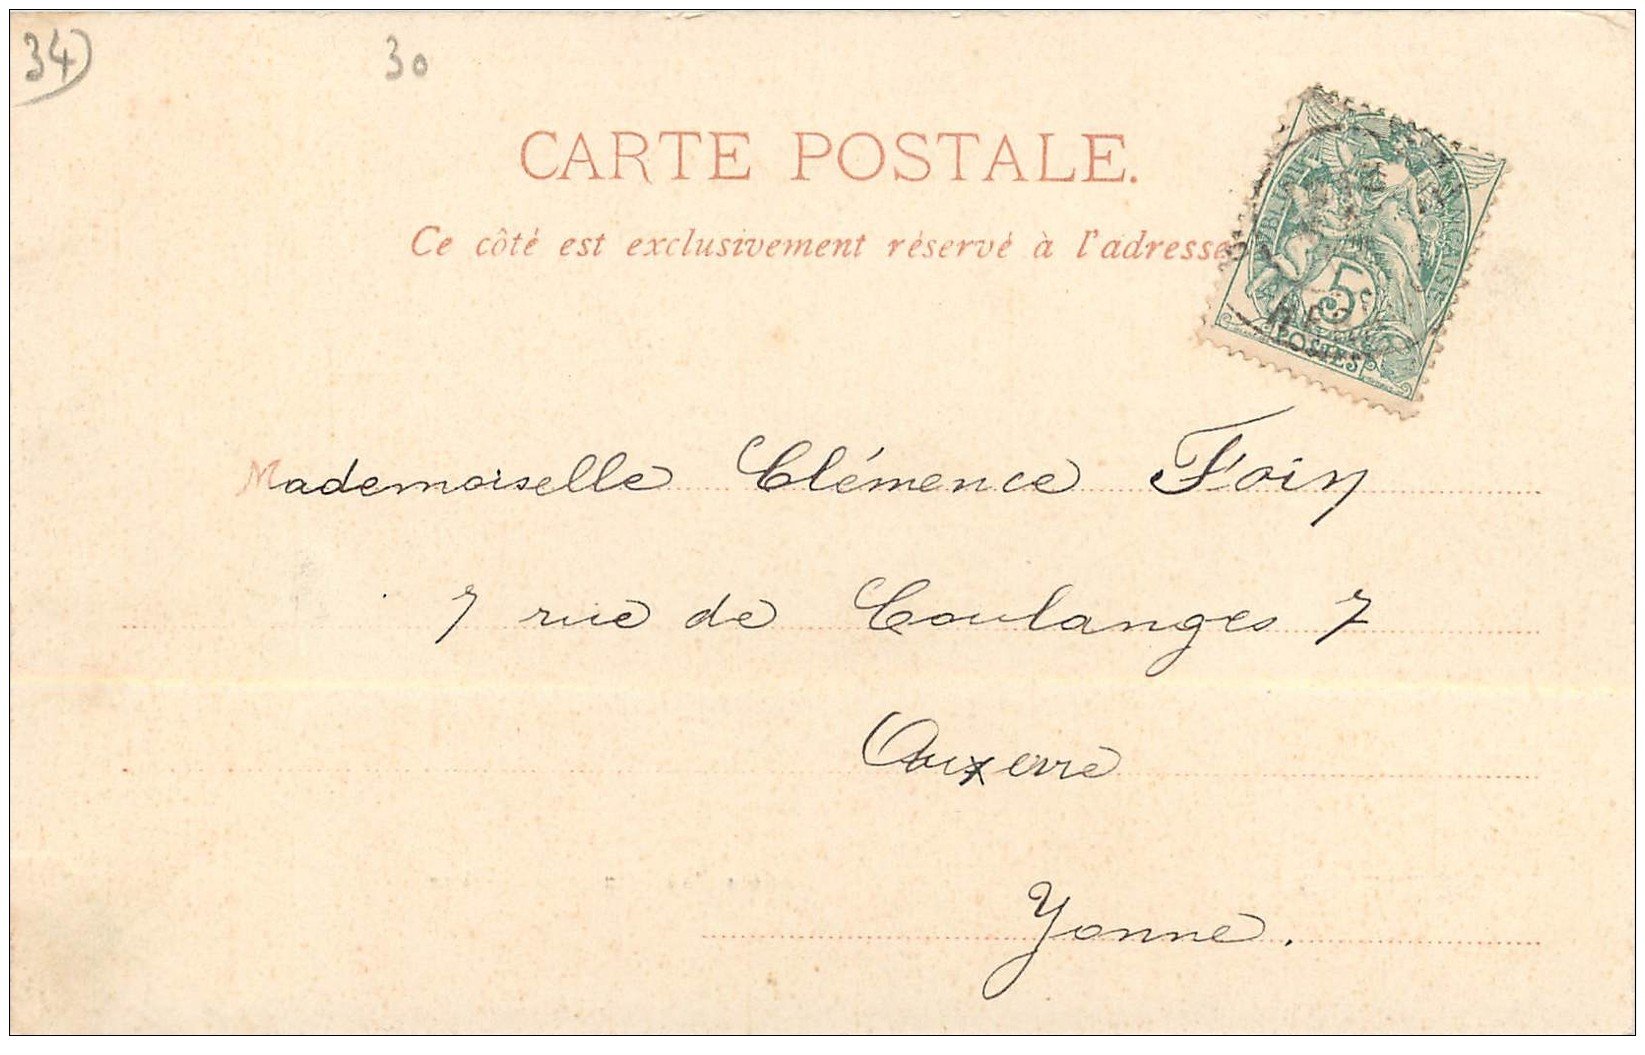 34)
30
CARTE POSTALE.
Ce côté est exclusivement réservé à l'adresse
5c
POSTES
Mademoiselle Clémence Foin
7 rue de Coulanges 7
Auxerre
Yonne.